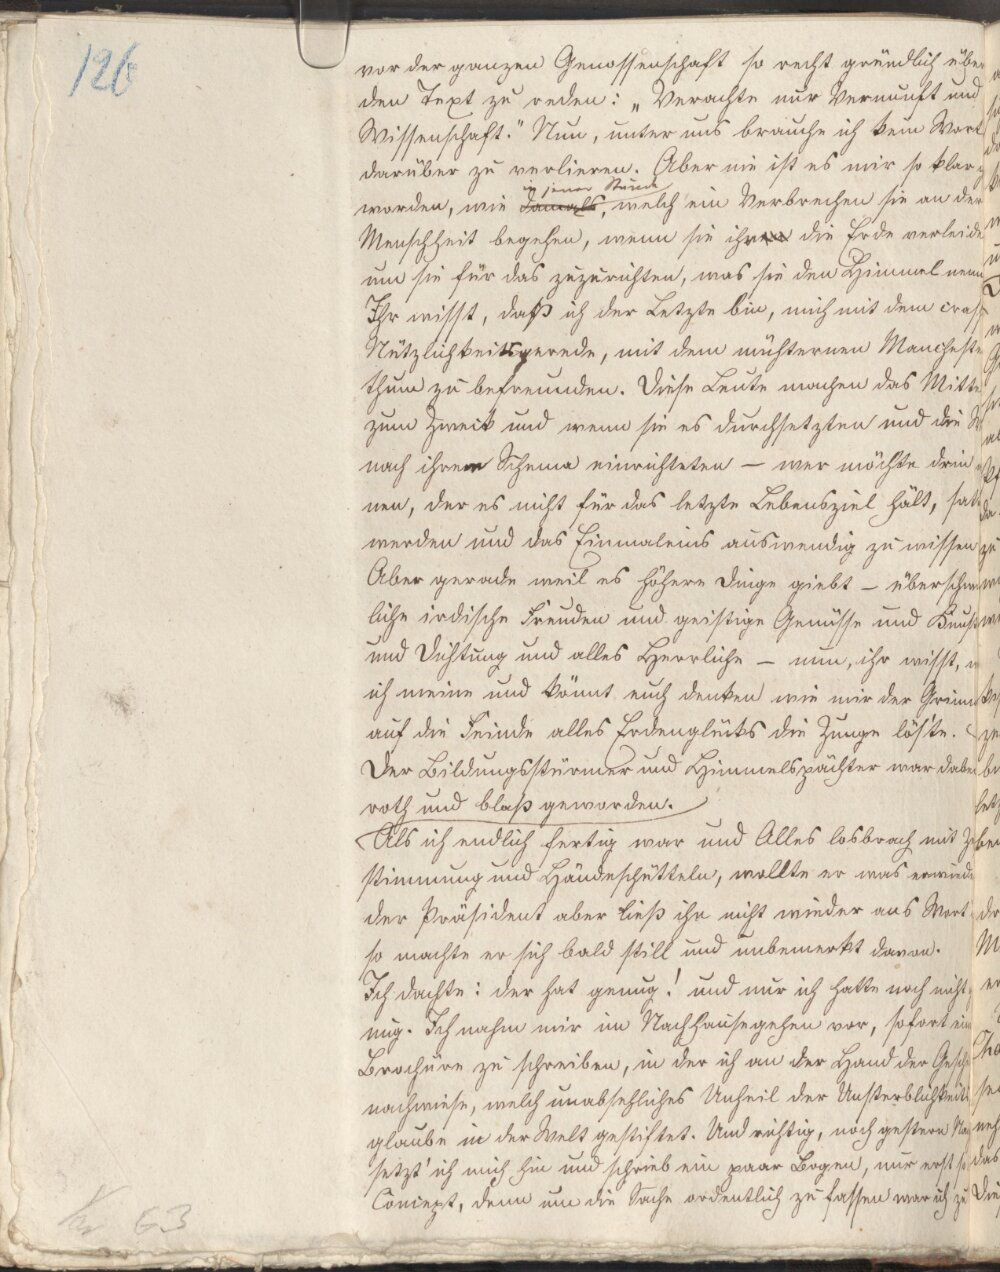 126
vor der ganzen Genossenschaft so recht gründlich über
den Text zu reden: „Verachte nur Vernunft und
Wissenschaft." Nun, unter uns brauche ich kein Wort
darüber zu verlieren. Aber nie ist es mir so klar ge
in jener Stunde
worden, wie damals, welch ein Verbrechen sie an der
Menschheit begehen, wenn sie ihr die Erde verleide
um sie für das zuzurichten, was sie den Himmel nenn
Ihr wisst, daß ich der Letzte bin, mich mit dem crass
Nützlichkeitsgerede, mit dem nüchternen Mancheste
thum zu befreunden. Diese Leute machen das Mitte
zum Zweck und wenn sie es durchsetzten und die
nach ihrem Schema einrichteten – wer möchte drin
nen, der es nicht für das letzte Lebensziel hält, satt
werden und das Einmaleins auswendig zu wissen
Aber gerade weil es höhere Dinge giebt – überschw
liche irdische Freuden und geistige Genüsse und Kunst
und Dichtung und alles Herrliche – nun, ihr wisst, w
ich meine und könnt euch denken wie mir der Grimm
auf die Feinde alles Erdenglücks die Zunge lös'te.
Der Bildungsstürmer und Himmelspächter war dabei
roth und blaß geworden.
Als ich endlich fertig war und Alles losbrach mit Zu
stimmung und Händeschütteln, wollte er was erwiede
der Präsident aber ließ ihn nicht wieder ans Wort
so machte er sich bald still und unbemerkt davon.
Ich dachte: der hat genug! und nur ich hatte noch nicht
nug. Ich nahm mir im Nachhausegehen vor, sofort ein
Brochüre zu schreiben, in der ich an der Hand der Gesch
nachwiese, welch unabsehliches Unheil der Unsterblichkeits
glaube in der Welt gestiftet. Und richtig, noch gestern Na
setzt' ich mich hin und schrieb ein paar Bogen, nur erst so
Concept, denn um die Sache ordentlich zu fassen war ich zu
63